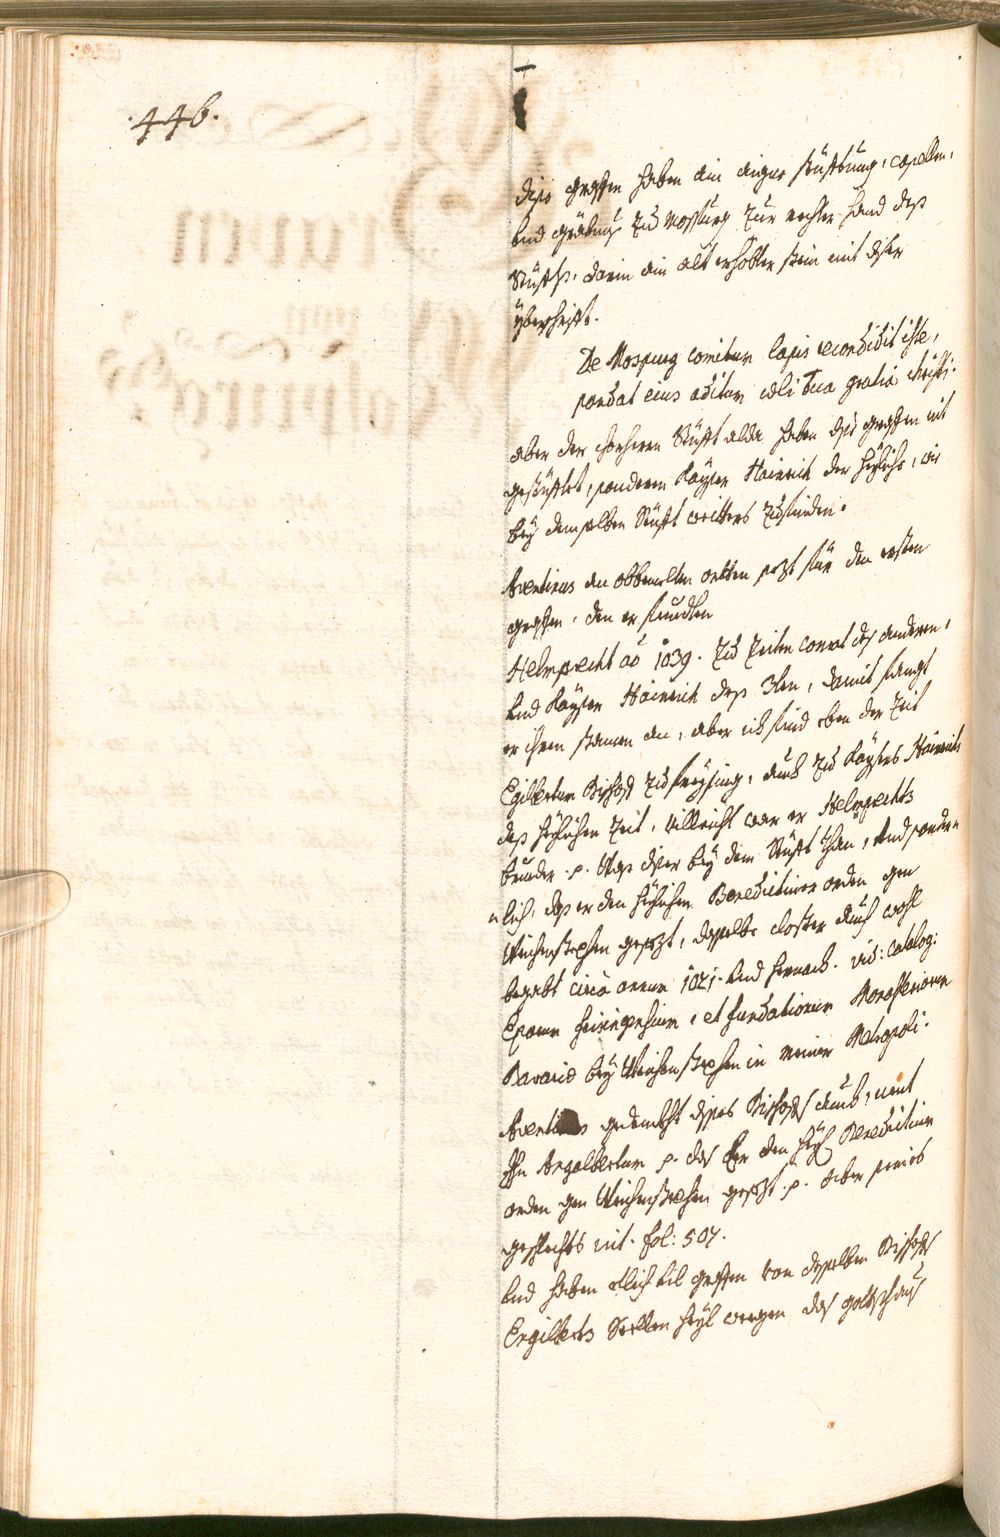 .446.
dise graffen haben ein aigne stüfftung, capellen,
vnd gräbnus zu Mospurg zur rechten hand dess
Stüffts, darin ein alt erhobter stein mit diser
yberschrifft.
De Mospurg comitum lapis recondidit iste,
pandat eius aditum coeli tua gratia christi.
aber der chorherrn Stüfft alda haben dise graffen nit
gestüfftet, sonderen Kayser Hainrich der heylige, wie
bey demselben Stüfft weitters zufinden.
Aventinus an obbemelten orthen sezt für den ersten
graffen, den er funden
Helmprecht ao 1039. zu zeiten conrat des anderen,
vnd Kayser Hainrich dess 3ten, damit fangt
er ihren stamen an, aber ich find eben der zeit
Egilbertum Bischoff zu freysing, auch zu Kaysers Hainrichs
dess heyligen zeit, villeicht war er Helmprechts
bruder .p. Was diser bey dem Stüfft than, vnd sonder-
lich, dass er den heyligen Benedictiner orden gen
Weichenstephen gesezt, dasselbe closter auch wohl
begabt circa annum 1021. vnd hernach. vid: catalog:
Eporum freisingensium, et fundationum Monasteriorum
Bavariae bey Weichenstephen in meiner Metropoli.
Aventinus gedenckht dises Bischoffs auch, nent
ihn Angelbertum p. das Er den heyl: Benedictiner
orden gen Weichenstephen gesezt .p. aber seines
geschlechts nit. fol: 507.
vnd haben etlich vil graffen von desselben Bischoffs
Engilberts Seelen heyl wegen das gottshaus